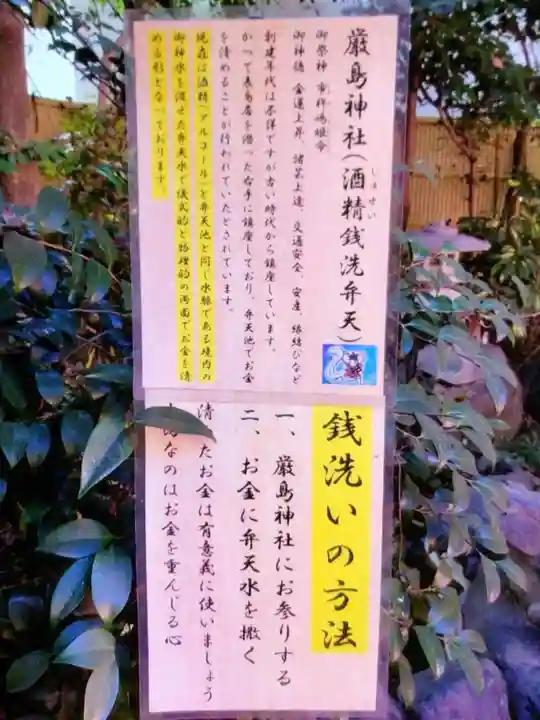 厳島神社(酒精銭洗弁天)
しゅせい
御祭神 市杵嶋姫命
御神徳 金運上昇、諸芸上達、交通安全、安産、縁結びなど
創建年代は不詳ですが古い時代から鎮座しています。
かつて表鳥居を潜った右手に鎮座しており、弁天池でお金
を清めることが行われていたとされています。
現在は酒精(アルコール)と弁天池と同じ水脈である境内の
御神水を混ぜた弁天水で儀式的と物理的の両面でお金を清
める形となっております。
銭洗いの方法
一、厳島神社にお参りする
二、お金に弁天水を撒く
清 たお金は有意義に使いましょう
なのはお金を重んじる心